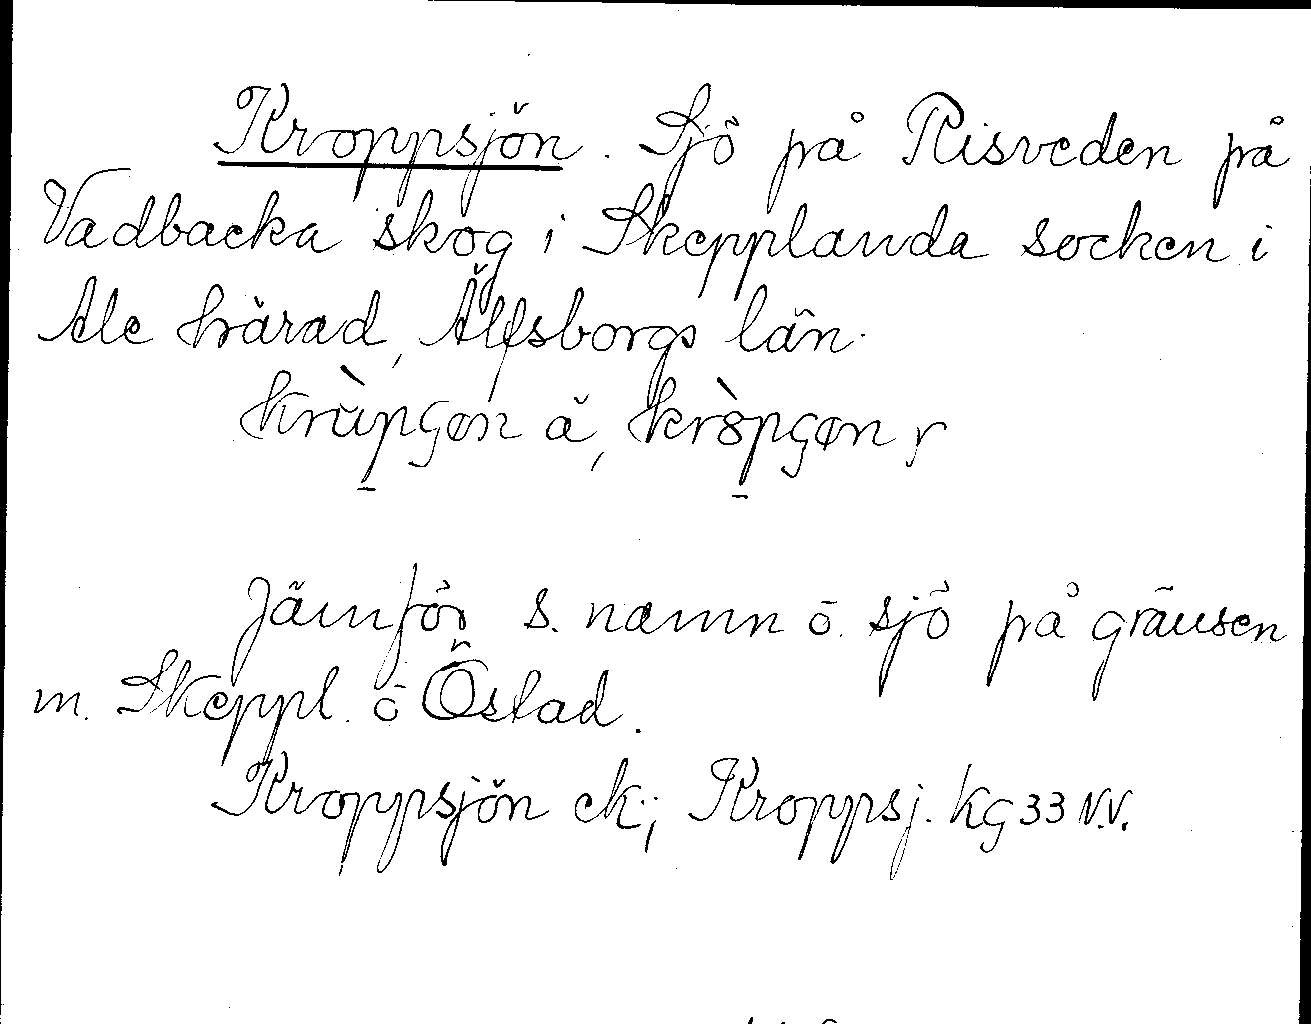 Kroppsjön. Sjö på Risveden på
Vadbacka skog i Skepplanda socken i
Ale härad, Älfsborgs län.
å,
Jämför s. namn ō. sjö på gränsen
m. Skeppl. ō Östad.
Kroppsjön ek; Kroppsj. kg 33 N.V.